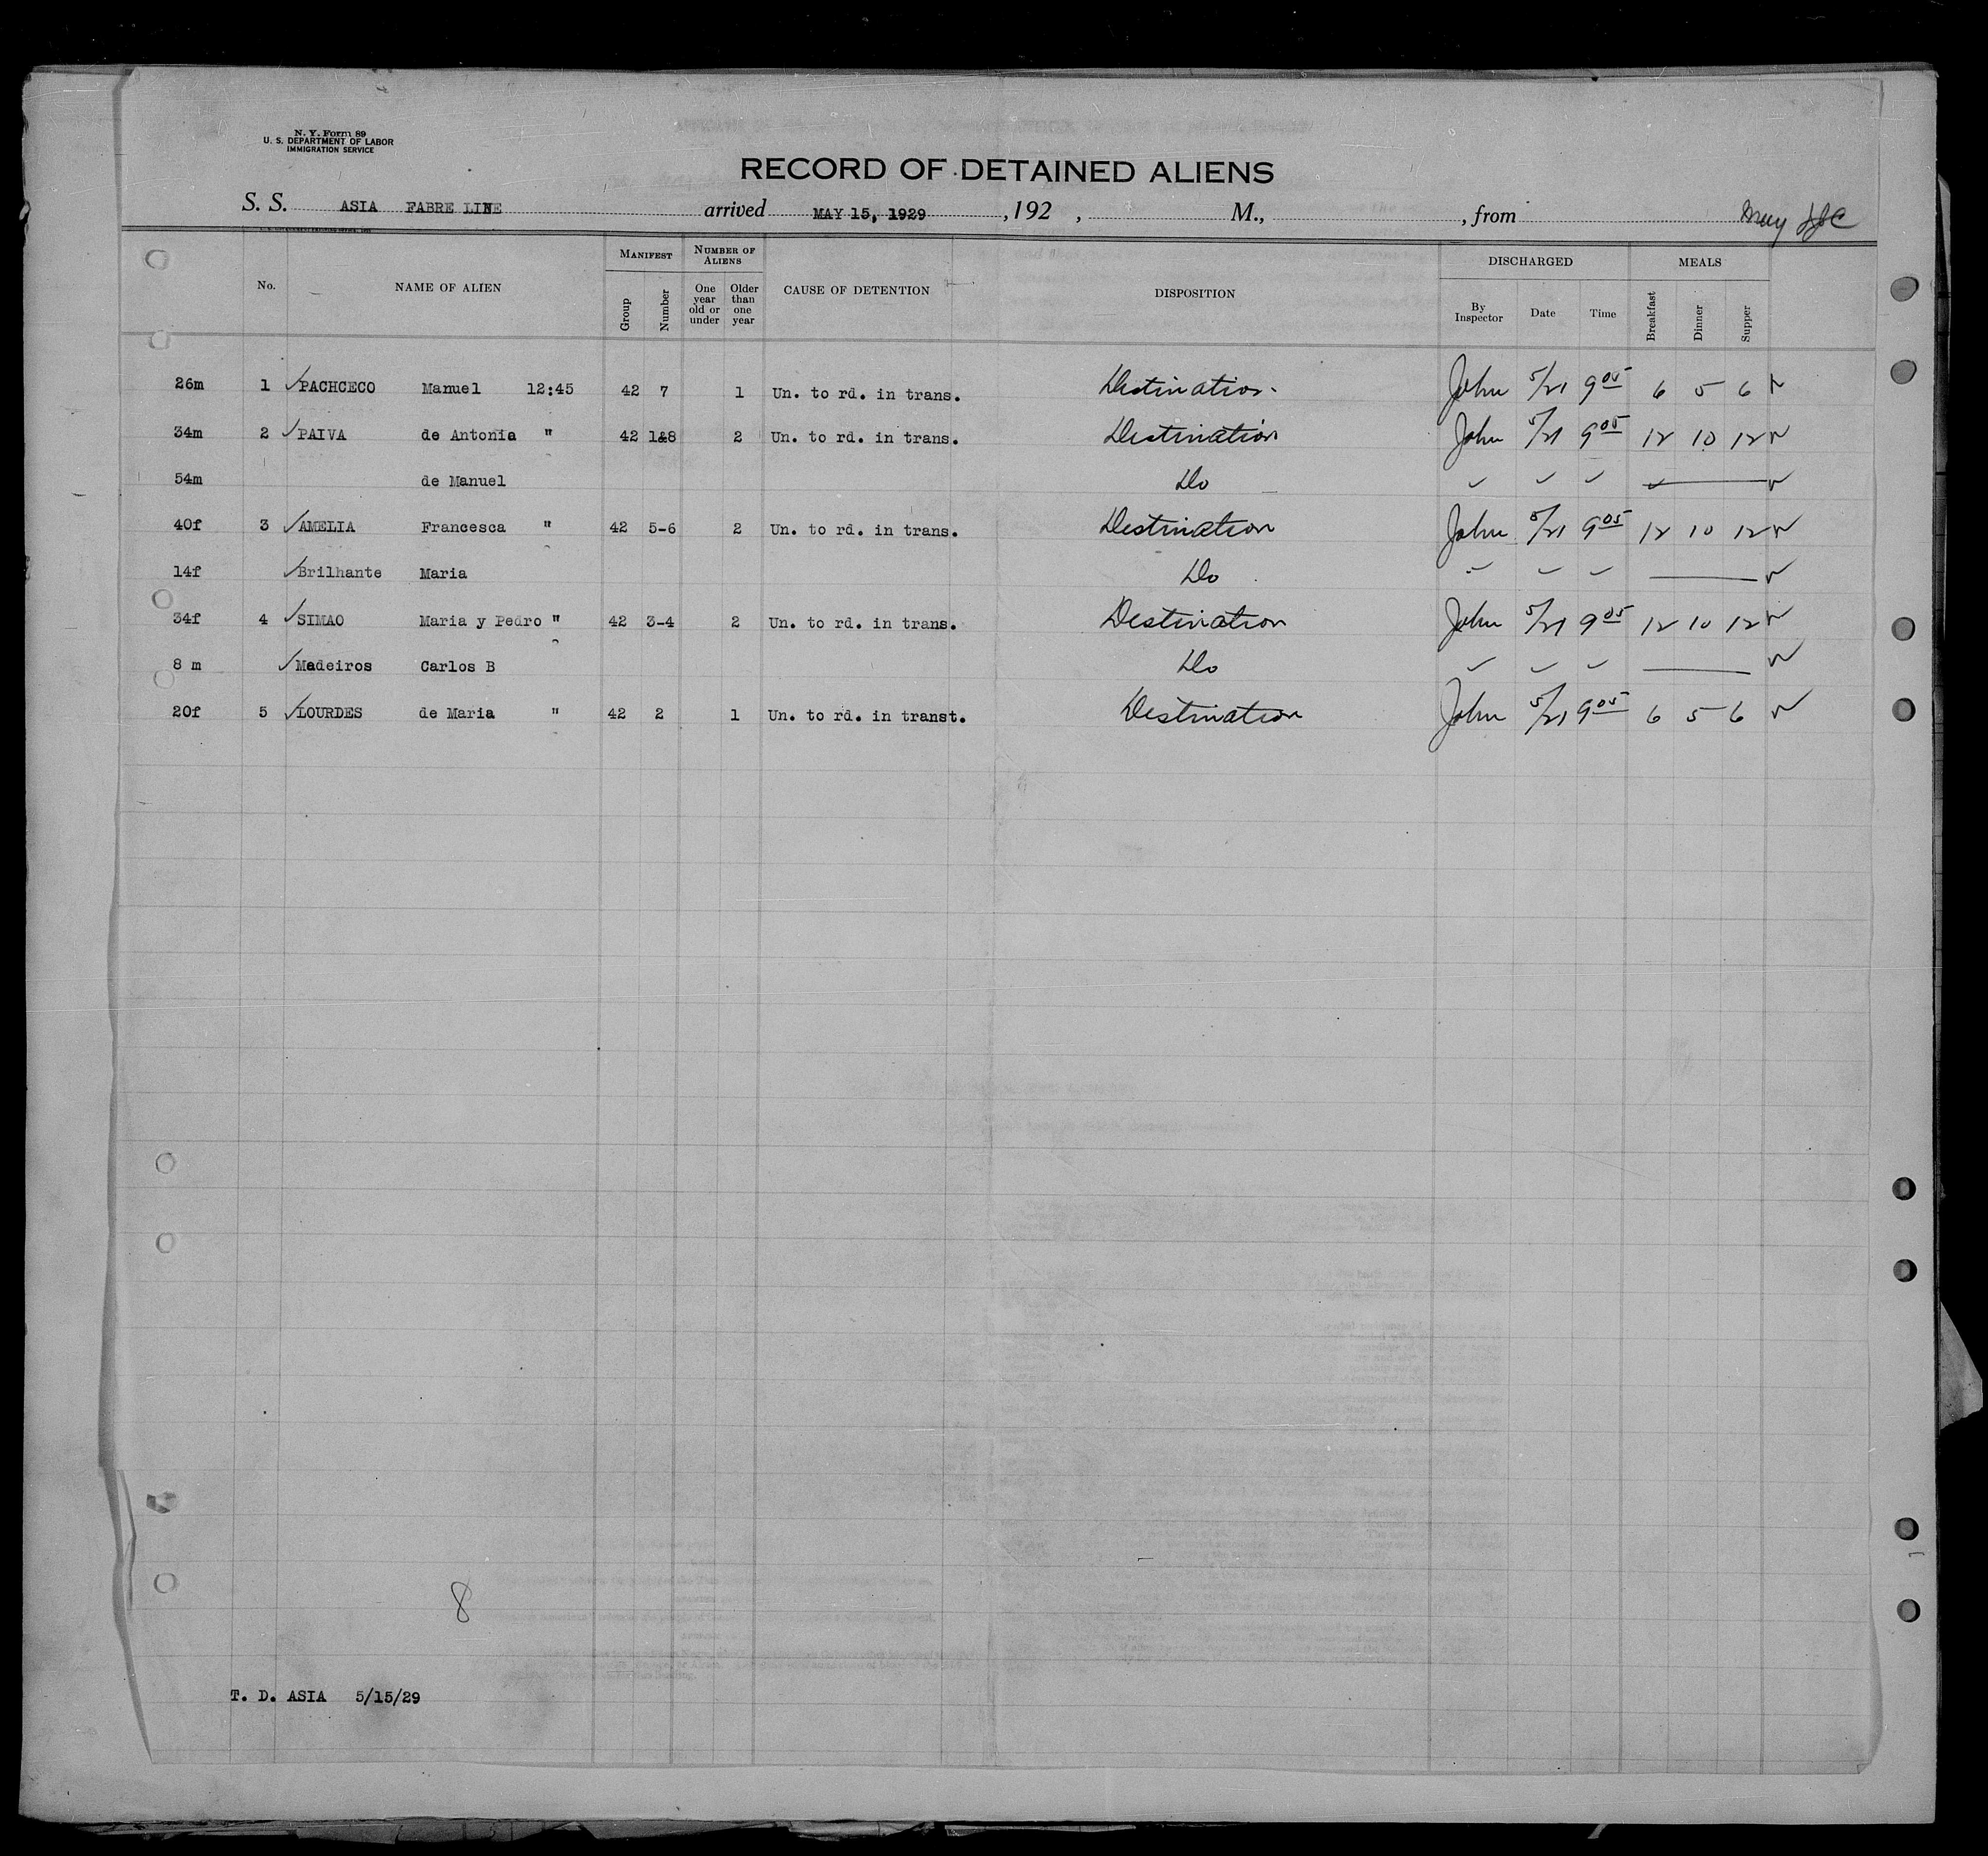 N. Y. Form 89
U. S. DEPARTMENT OF LABOR
IMMIGRATION SERVICE
RECORD OF DETAINED ALIENS
S. S. ASIA FABRE LINE arrived MAY 15, 1929, 192 , M., , from
No. NAME OF ALIEN MANIFEST Group Number NUMBER OF ALIENS One year old or under Older than one year CAUSE OF DETENTION DISPOSITION DISCHARGED By Inspector Date Time MEALS Breakfast Dinner Supper
26m 1 ✓PACHCECO Manuel 12:45 42 7 1 Un. to rd. in trans. Destination John 5/21 9 05 6 5 6 ✓
34m 2 ✓PAIVA de Antonia " 42 1&8 2 Un. to rd. in trans. Destination John 5/21 9 05 12 10 12 ✓
54m de Manuel Do ✓ ✓ ✓ ✓ ✓
40f 3 ✓AMELIA Francesca " 42 5-6 2 Un. to rd. in trans. Destination John 5/21 9 05 12 10 12 ✓
14f ✓Brilhante Maria Do ✓ ✓ ✓ ✓
34f 4 ✓SIMAO Maria y Pedro " 42 3-4 2 Un. to rd. in trans. Destination John 5/21 9 05 12 10 12 ✓
8 m ✓Madeiros Carlos B Do ✓ ✓ ✓ ✓
20f 5 ✓LOURDES de Maria " 42 2 1 Un. to rd. in transt. Destination John 5/21 9 05 6 5 6 ✓
8
T. D. ASIA 5/15/29